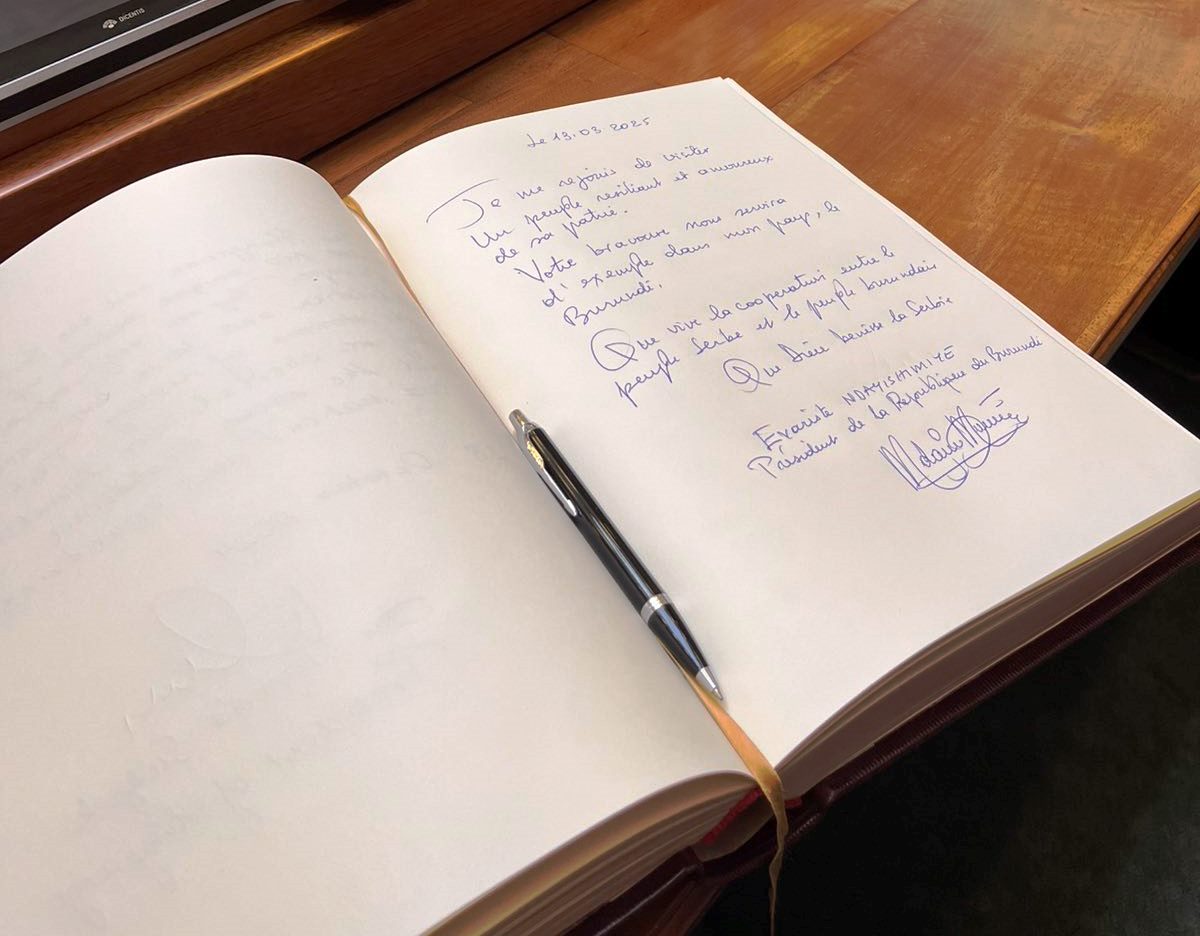 DICENTIS
Le 13.03.2025
Je me rejouis de visiter
Un peuple resiliant et amoureux
de sa patrie.
Votre bravoure nous servira
d'exemple dans mon pays, le
Burundi.
Que vive la cooperation entre le
peuple Serbe et le peuple burundais
Que Dieu benisse la Serbie
Evariste NDAYISHIMIYE
Président de la République du Burundi